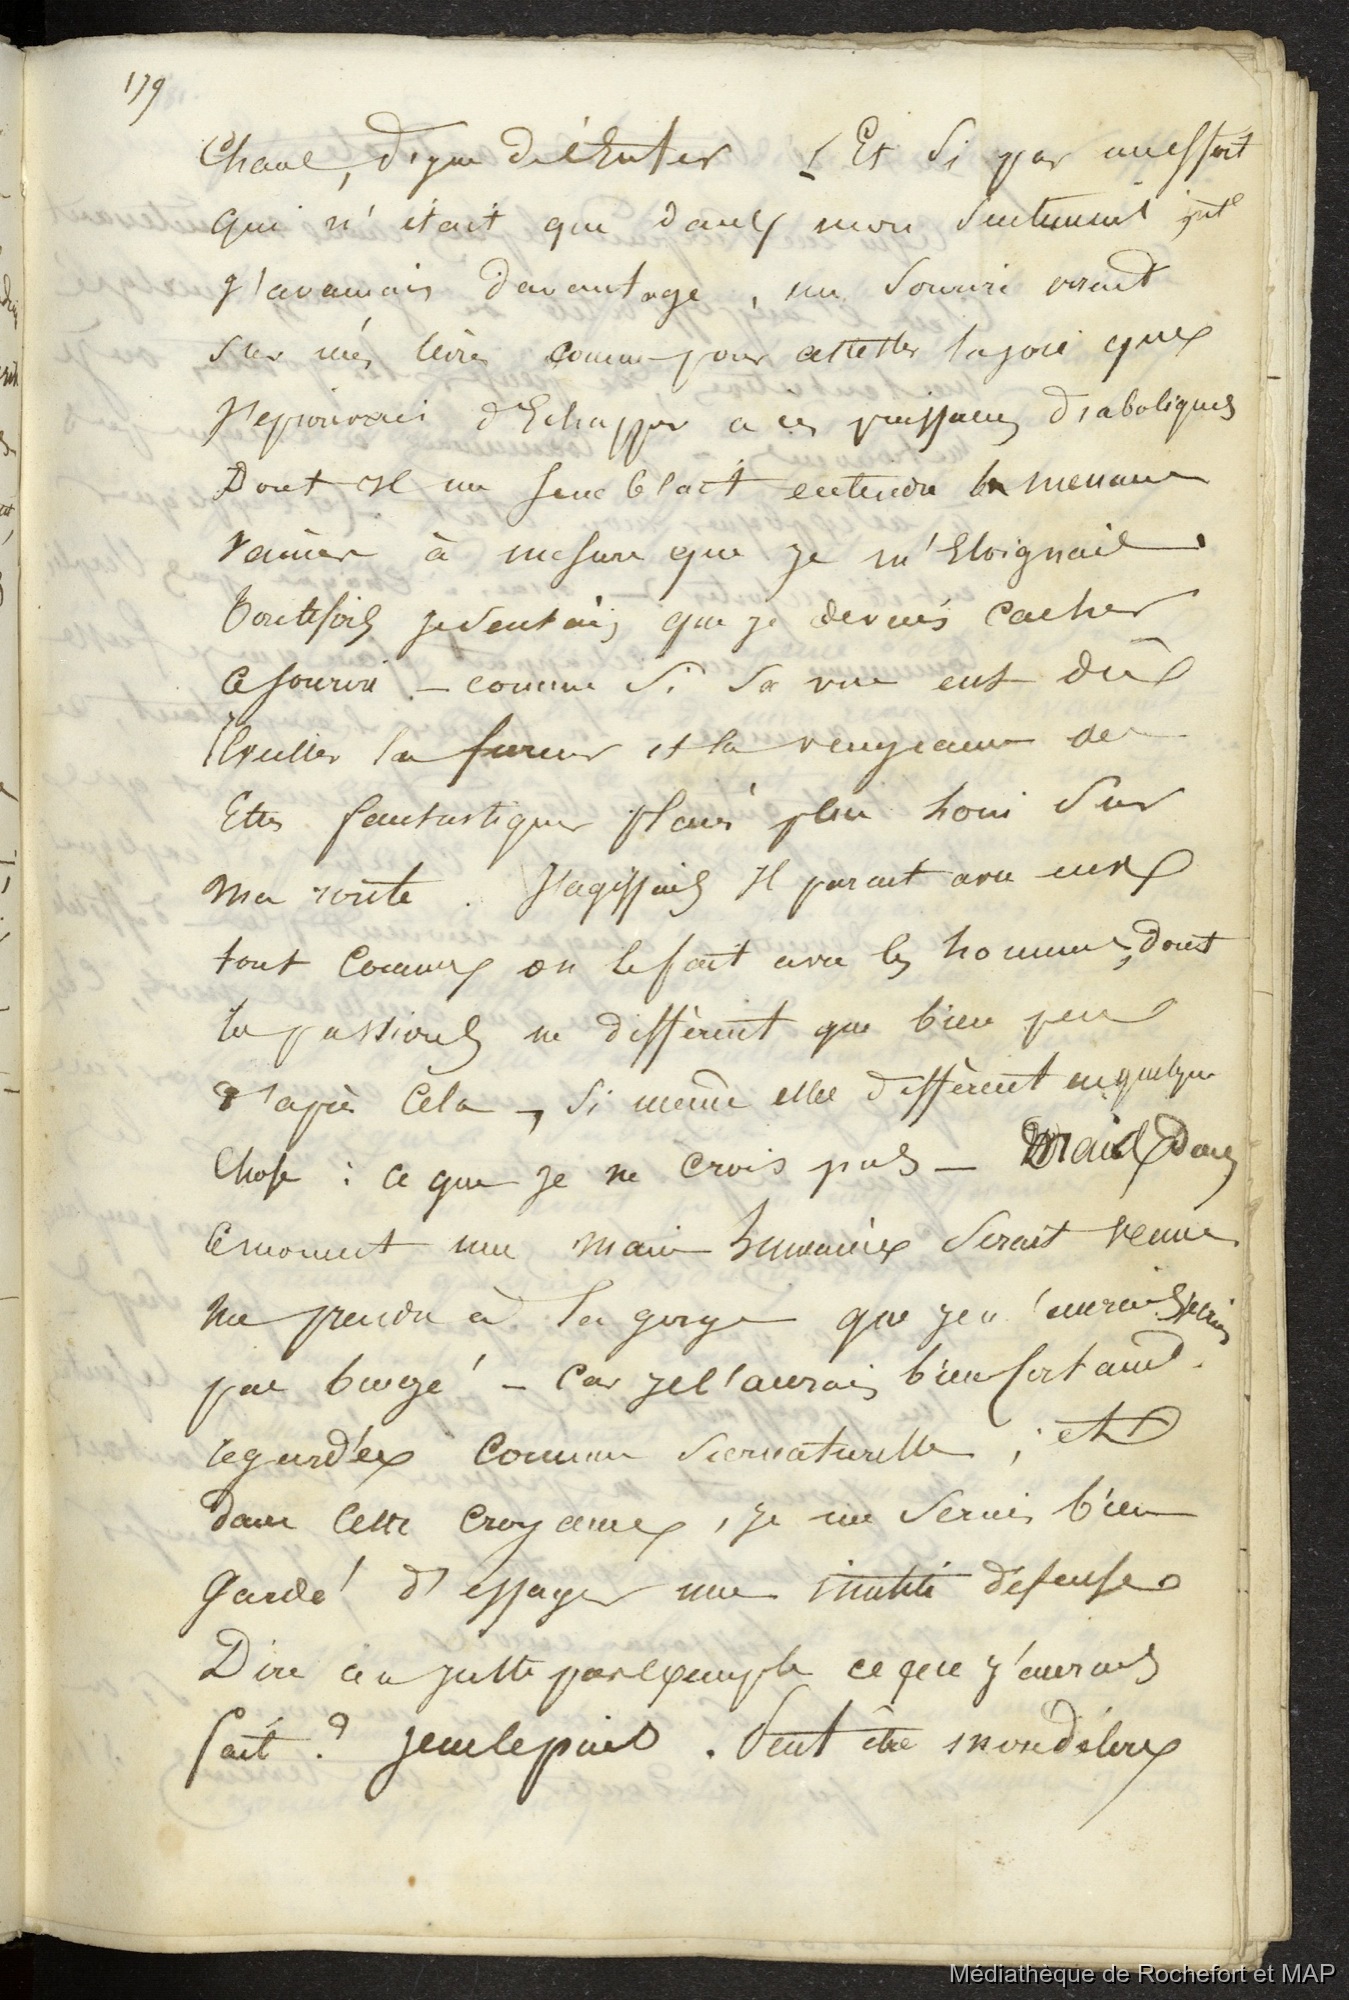 179
Chaul, digne de l'Enfer ! Et Si par un effort
qui n'était que dans mon Sentiment
j'avancais davantage, un Sourire errait
Sur mes levres comme pour attester la joie que
J'eprouvais d'Echapper a ces puissances diaboliques
Dont il me semblait entendre la menace
à mesure que je m'Eloignais
Toutefois je sentais que je devais cacher
ce sourire – comme Si Sa vue eut dû
Eveiller la fureur et la vengeance des
Etres fantastiques placés plus loin Sur
Ma route. J'agissais Il parait avec eux
tout comme on le fait avec les hommes, dont
les passions ne different que bien peu
d'après Cela –, Si même elles diffèrent en quelque
Chose : ce que je ne crois pas – Mais dans
ce moment une main humaine Serait venue
me prendre à la gorge que je n'aurais
pas bougé – Car je l'aurais bien fort aussi
regardée comme Surnaturelle ; et
dans cette croyance, je me Serais bien
Gardé d'essayer une inutile défense
Dire au juste par exemple ce que j'aurais
fait ? je ne le puis. Peut être mon délire
Médiathèque de Rochefort et MAP